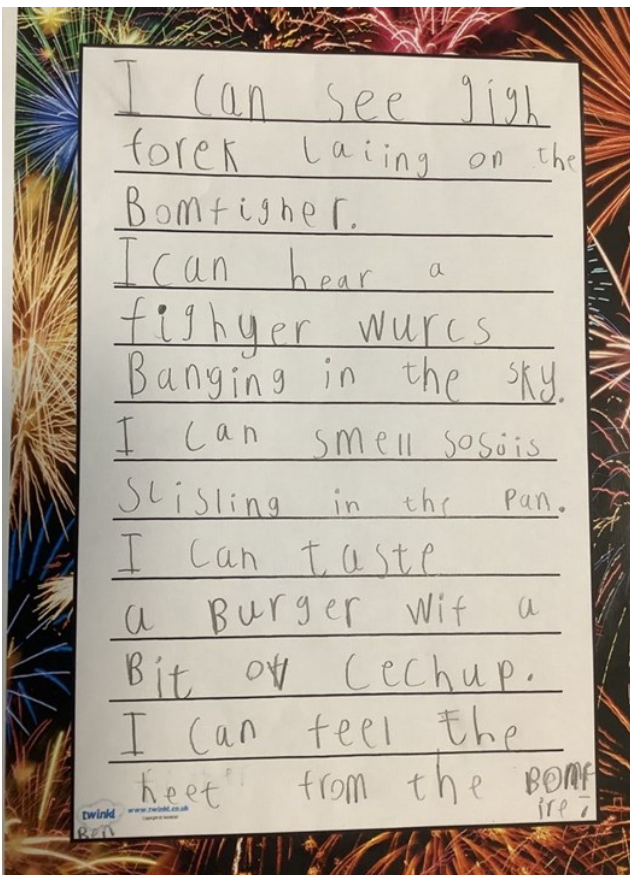 I can see gigh
forek laiing on the
Bomfigher.
I can hear a
fighyer wurcs
Banging in the sky.
I can smell sosois
SLisling in the pan.
I can taste
a Burger wif a
Bit ov cechup.
I can feel the
heet from the BOMF
ire
twinkl www.twinkl.co.uk
Ben